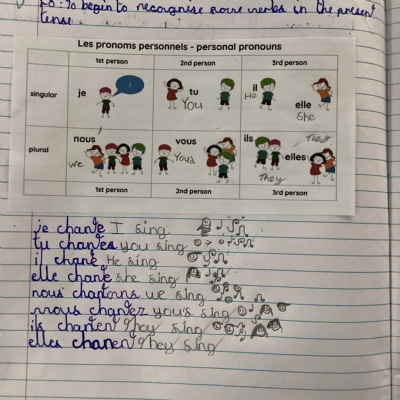 LO: To begin to recognise some verbs in the present
tense
Les pronoms personnels - personal pronouns
1st person 2nd person 3rd person
singular je tu You il He elle She
plural nous We vous Yous ils They elles They
1st person 2nd person 3rd person
je chante I sing
tu chantes you sing
il chante He sing
elle chante she sing
nous chantons we sing
vous chantez you's sing
ils chanten they sing
elles chanten They sing